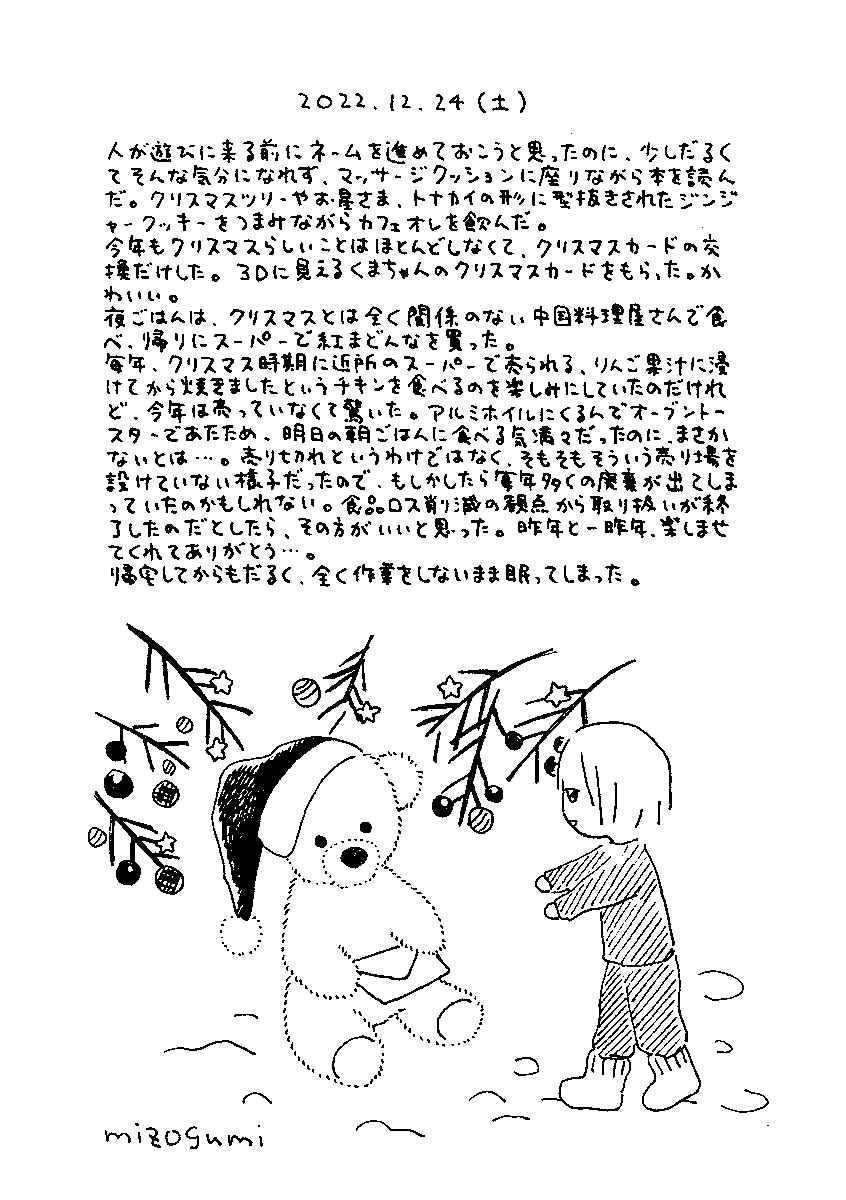 2022.12.24(土)
人が遊びに来る前にネームを進めておこうと思ったのに、少しだるく
てそんな気分になれず、マッサージクッションに座りながら本を読ん
だ。クリスマスツリーやお星さま、トナカイの形に型抜きされたジンジ
ャークッキーをつまみながらカフェオレを飲んだ。
今年もクリスマスらしいことはほとんどしなくて、クリスマスカードの交
換だけした。3Dに見えるくまちゃんのクリスマスカードをもらった。か
わいい。
夜ごはんは、クリスマスとは全く関係のない中国料理屋さんで食
べ、帰りにスーパーで紅まどんなを買った。
毎年、クリスマス時期に近所のスーパーで売られる、りんご果汁に浸
けてから焼きましたというチキンを食べるのを楽しみにしていたのだけれ
ど、今年は売っていなくて驚いた。アルミホイルにくるんでオーブントー
スターであたため、明日の朝ごはんに食べる気満々だったのに、まさか
ないとは…。売り切れというわけではなく、そもそもそういう売り場を
設けていない様子だったので、もしかしたら毎年多くの廃棄が出てしま
っていたのかもしれない。食品ロス削減の観点から取り扱いが終
了したのだとしたら、その方がいいと思った。昨年と一昨年、楽しませ
てくれてありがとう…。
帰宅してからもだるく、全く作業をしないまま眠ってしまった。
mizogumi